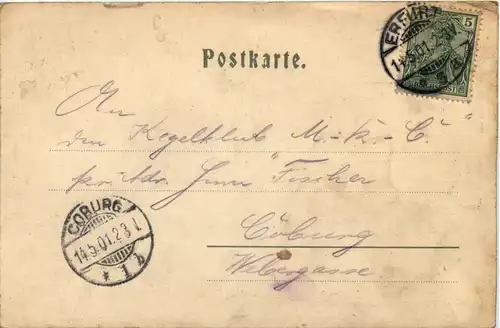 5
ERFURT
14.5.01.
Postkarte.
An
den Kegelklub M.-k.-C.
pr. Adr. Herrn Fischer
COBURG
14.5.01.2-3
* 1 b
Coburg
Webergasse